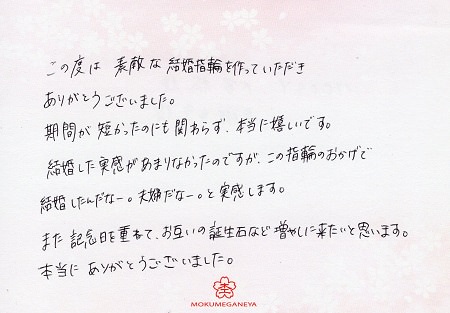 この度は 素敵な結婚指輪を作っていただき
ありがとうございました。
期間が短かったのにも関わらず、本当に嬉しいです。
結婚した実感があまりなかったのですが、この指輪のおかげで
結婚したんだなー。夫婦だなー。と実感します。
また記念日を重ねて、お互いの誕生石など増やしに来たいと思います。
本当にありがとうございました。
MOKUMEGANEYA